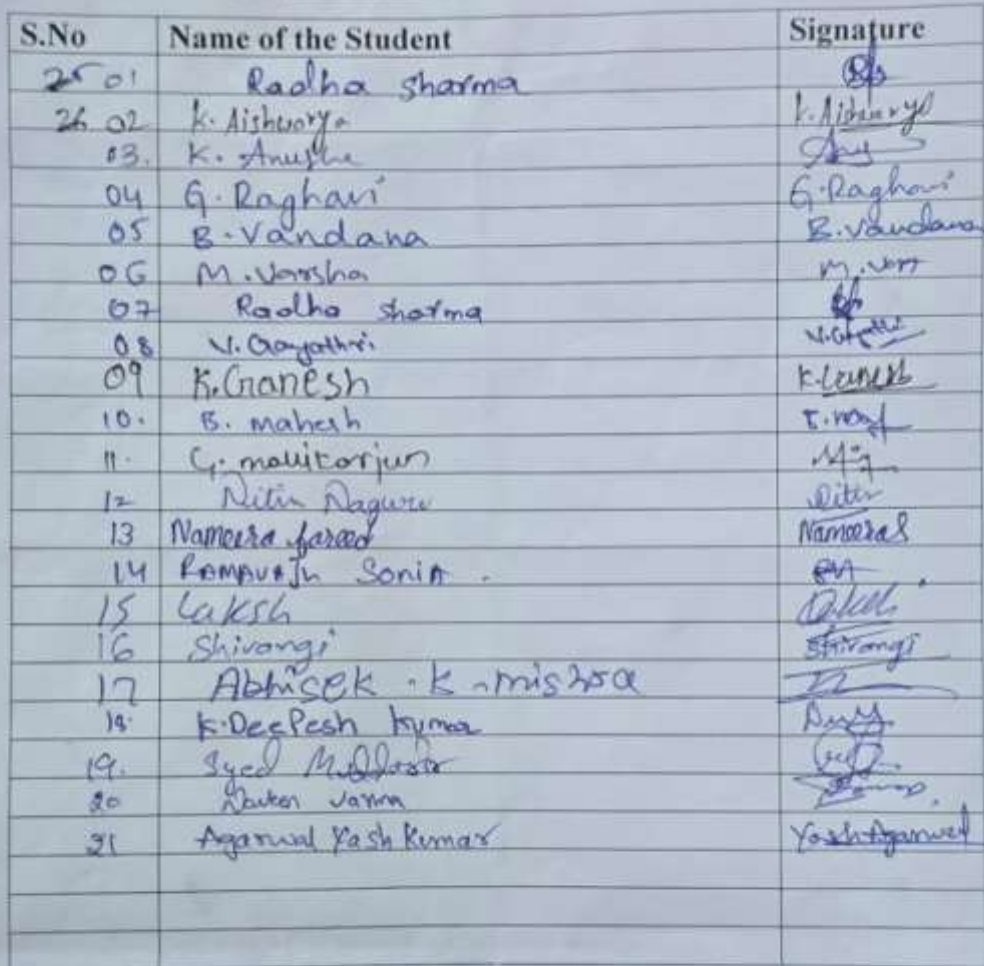 S.No Name of the Student Signature
25 01 Radha sharma
26 02 K. Aishwarya K. Aishwarya
03. K. Anusha Anu
04 G. Raghavi G. Raghavi
05 B. Vandana B. Vandana
06 M. Varsha M. Var
07 Radha sharma
08 V. Gayathri V. Gayathri
09 K. Ganesh K. Ganesh
10. B. mahesh
11. G. mallikarjun
12 Nitin Naguri Nitin
13 Nameera fareed Nameera f
14 RAMAVATh SoniA .
15 Laksh
16 Shivangi Shivangi
17 Abhisek . K . mishra
18. K. DeePesh kumar
19. Syed
20 varma
21 Agarwal Yash Kumar Yash Agarwal